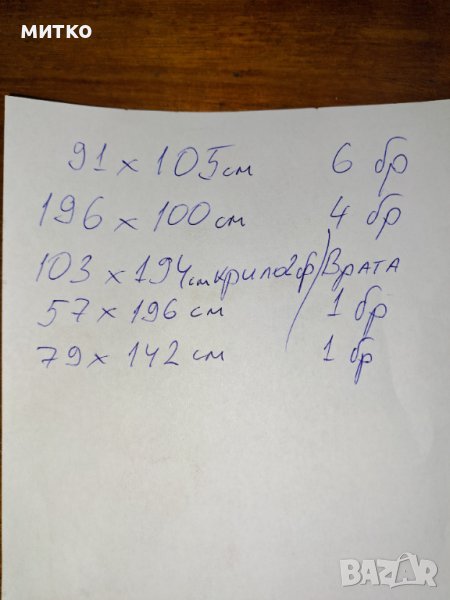 МИТКО
91 x 105 см 6 бр
196 x 100 см 4 бр
103 x 194 см крило 2ф/Врата
57 x 196 см 1 бр
79 x 142 см 1 бр
BAZAR